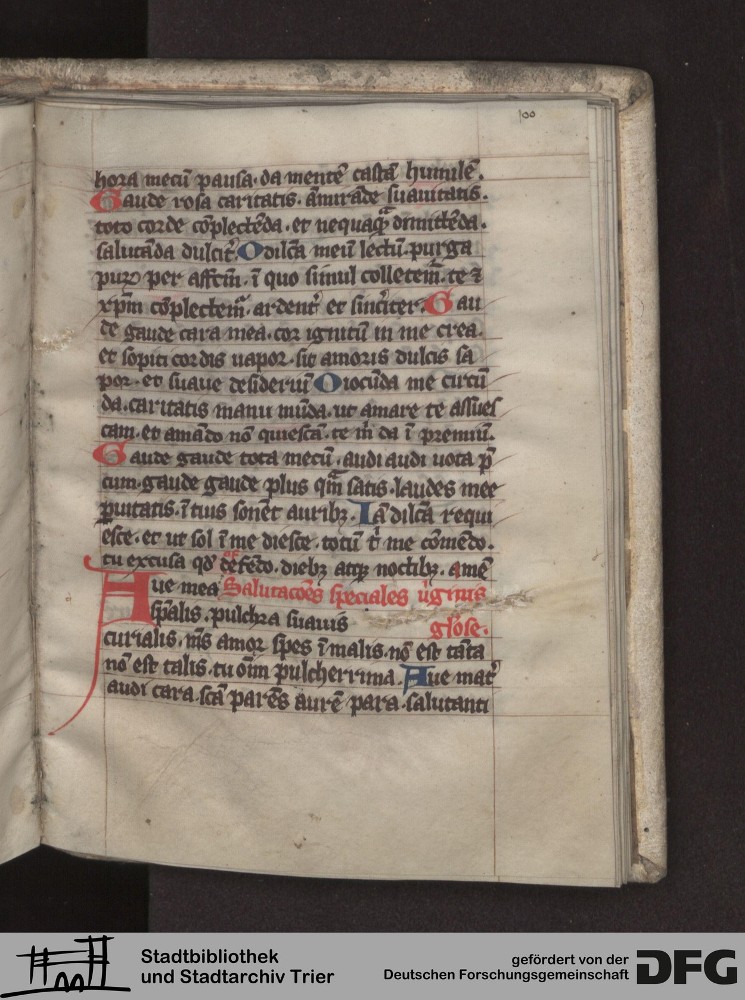 100
hora mecū pausa· da mentē castā humilē·
Gaude rosa caritatis· āmirāde suauitatis·
toto corde cōplectēda· et nequaqͣ dimittēda·
salutāda dulcit᷑· O dilc̄a meū lectū· purga
per affcm̄· ī quo simul colletem᷑· te ⁊
xp̄m cōplectem᷑· ardent᷑ et sinc᷑iter· Gau
de gaude cara mea· cor ignitū in me crea·
et sopiti cordis uapor· sit amoris dulcis sa
por· et suaue desideriū O iocūda me circū
da· caritatis manu mūda· ut amare te assues
cam· et amādo nō quiescā· te m̄ da ī premiū·
Gaude gaude tota mecū· audi audi uota p̄
cum· gaude gaude plus qm̄ satis· laudes mee
puitatis· ītius sonēt auribꝫ· Iā dilc̄a requi
esce· et ut sol ī me diesce· totū t᷑ me cōmēdo·
tu excusa qd̓ defēdo· diebꝫ atqꝫ noctibꝫ· amē
Aue mea Salutac̄oēs speciales ūginis
sp̄alis· pulchra suauis glōse·
curialis· m̄s amor spes ī malis· nō est tāta
nō est talis· tu oīm pulcherrima· Aue mat᷑
audi cara· sc̄a parēs aurē para· salutanti
Stadtbibliothek
und Stadtarchiv Trier
gefördert von der
Deutschen Forschungsgemeinschaft
DFG